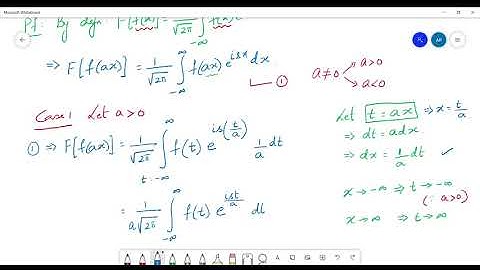 Microsoft Whiteboard
Pf: By defn F[f(ax)] = 1/√2π ∫_{-∞} f(x)
⇒ F[f(ax)] = 1/√2π ∫_{-∞}^{∞} f(ax) e^{isx} dx —①
a≠0 → a>0
→ a<0
Case 1 Let a>0
① ⇒ F[f(ax)] = 1/√2π ∫_{t=-∞}^{∞} f(t) e^{is(t/a)} 1/a dt
= 1/a√2π ∫_{-∞}^{∞} f(t) e^{ist/a} dt
Let t=ax ⇒ x=t/a
⇒ dt = adx
⇒ dx = 1/a dt ✓
x→-∞ ⇒ t→-∞
(∵ a>0)
x→∞ ⇒ t→∞